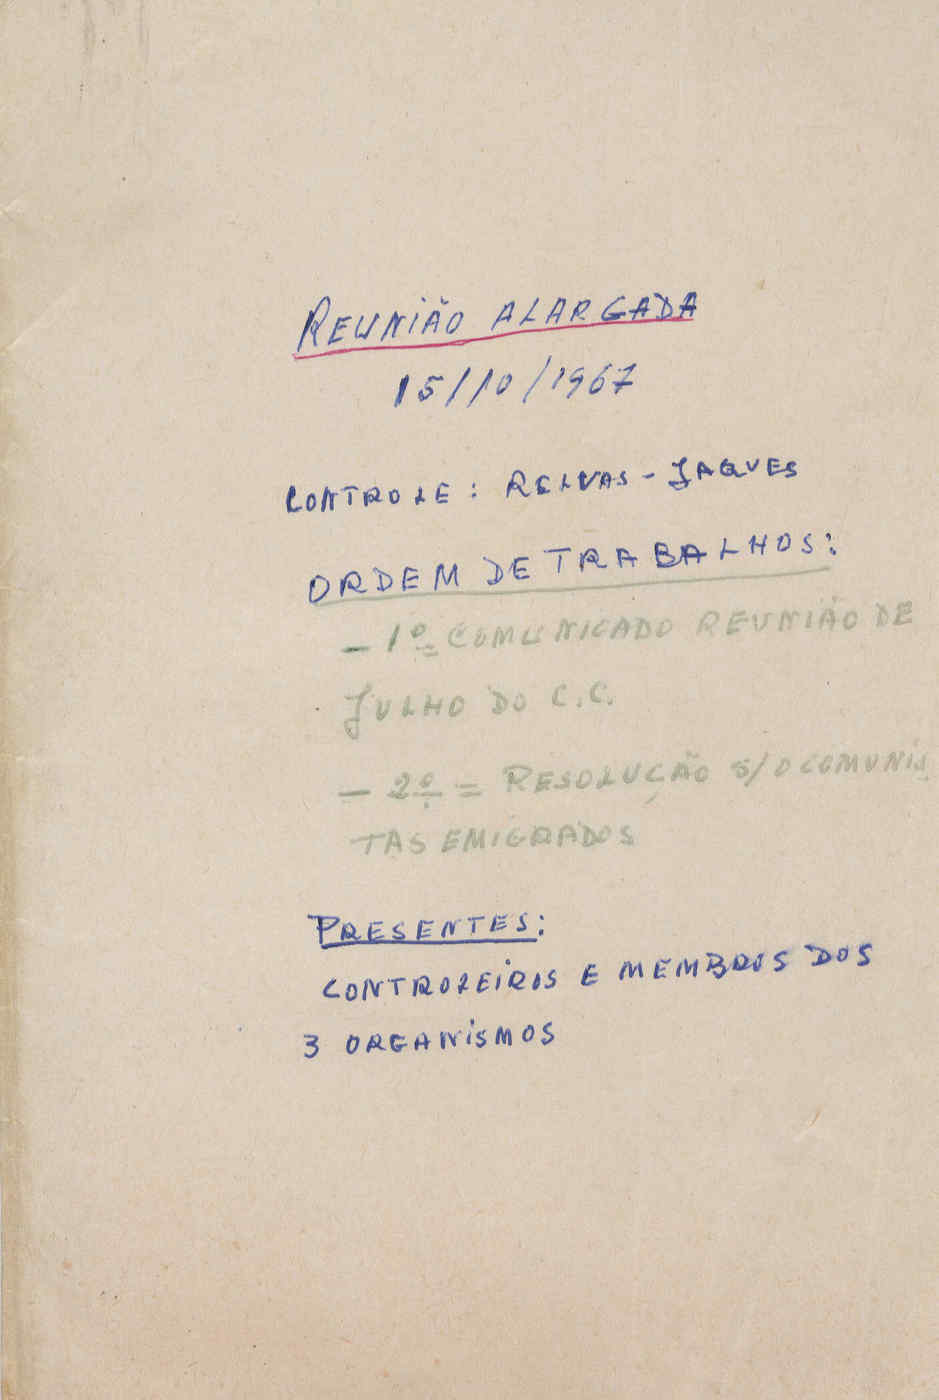 REUNIÃO ALARGADA
15/10/1967
CONTROLE: RELVAS - JAQUES
ORDEM DE TRABALHOS:
- 1º = COMUNICADO REUNIÃO DE
JULHO DO C.C.
- 2º = RESOLUÇÃO S/O COMUNIS
TAS EMIGRADOS
PRESENTES:
CONTROLEIROS E MEMBROS DOS
3 ORGANISMOS